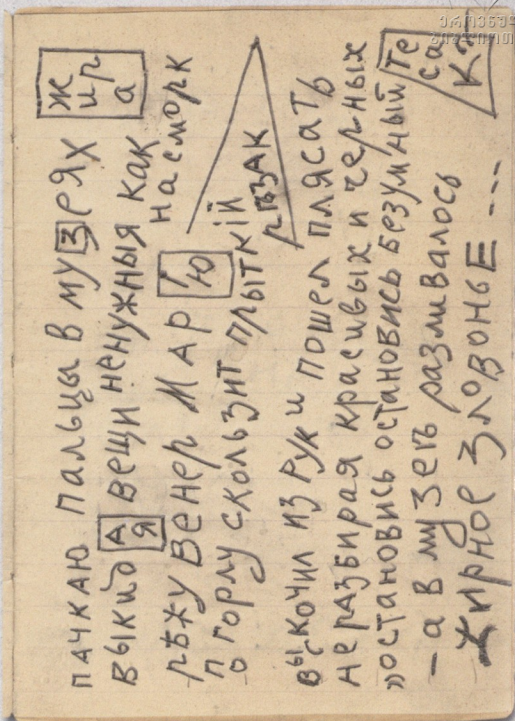 пачкаю пальцы в муЗЕЯХ жира
выкидАя вещи ненужныя как насморк
рѣжу Венер МАРІЮ
по горлу скользит прыткій рѣзак
выкочил из рук и пошел плясать
неразбирая красивых и черных
„остановись остановись безумный тесаК"
– а в музеѣ разливалось
жирное зловоньЕ ---